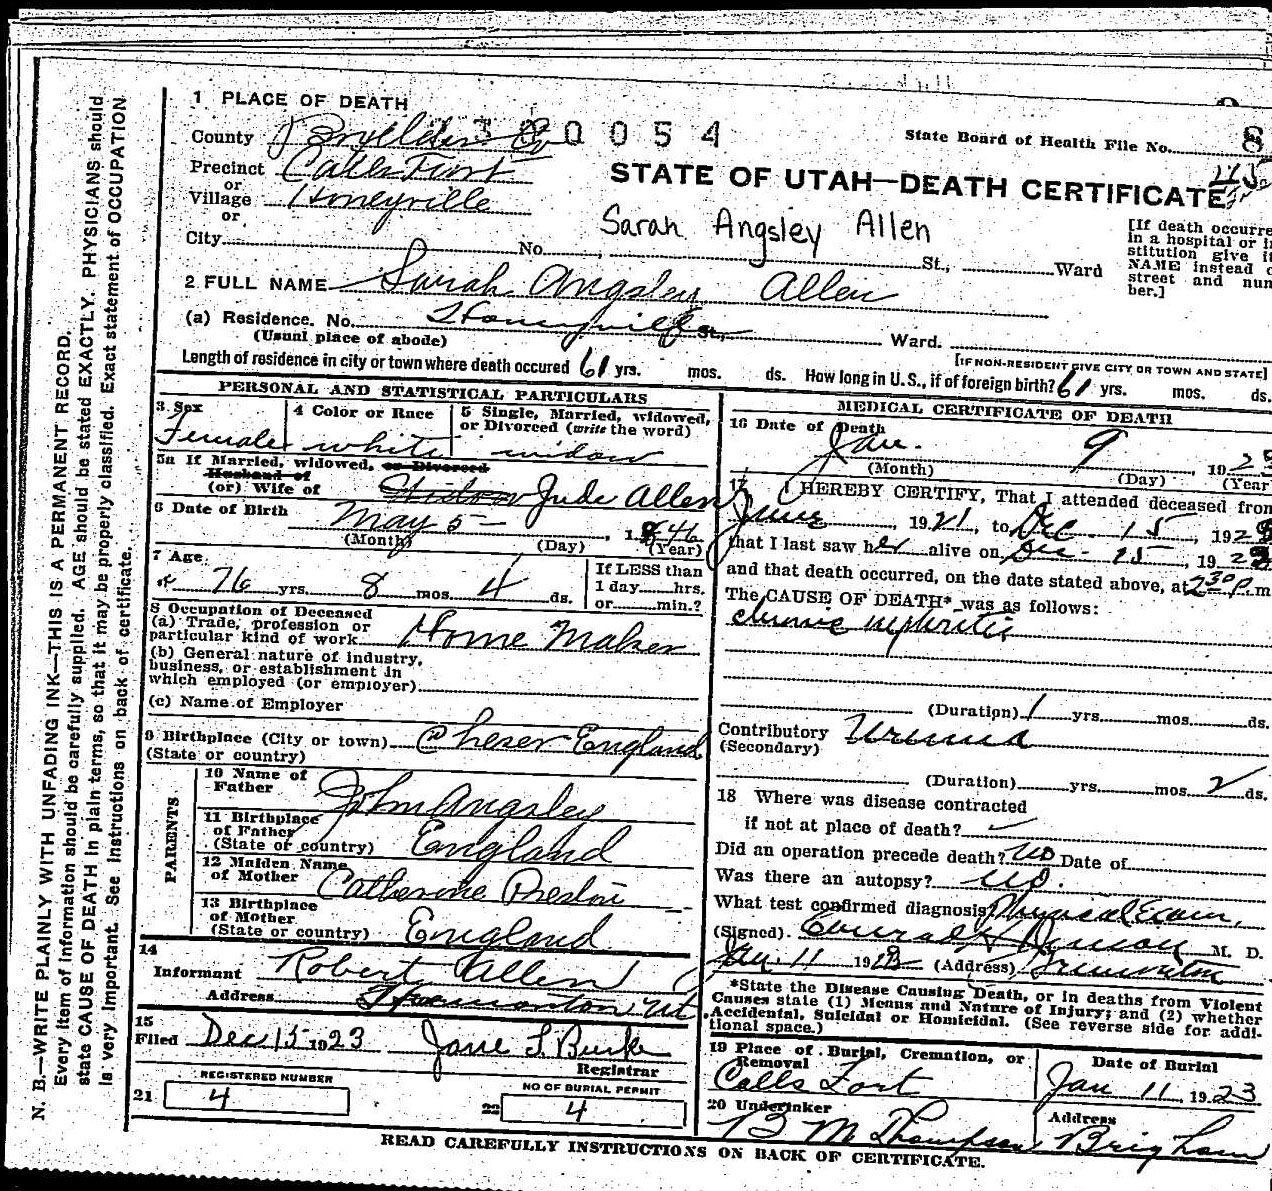 1 PLACE OF DEATH
County Boxelder Co 300054
State Board of Health File No. 8
Precinct Calls Fort
or
Village Honeyville
or
STATE OF UTAH—DEATH CERTIFICATE
Sarah Angsley Allen
City No. St., Ward
[If death occurre
in a hospital or in
stitution give it
NAME instead o
street and num
ber.]
2 FULL NAME Sarah Angsley Allen
(a) Residence. No. Honeyville St., Ward.
(Usual place of abode)
[IF NON-RESIDENT GIVE CITY OR TOWN AND STATE]
Length of residence in city or town where death occured 61 yrs. mos. ds. How long in U.S., if of foreign birth? 61 yrs. mos. ds.
PERSONAL AND STATISTICAL PARTICULARS
3 Sex
Female
4 Color or Race
white
5 Single, Married, widowed,
or Divorced (write the word)
widow
5a If Married, widowed, or Divorced
Husband of
(or) Wife of Widow Jude Allen
6 Date of Birth May 5 1846
(Month) (Day) (Year)
7 Age
76 yrs. 8 mos. 4 ds.
If LESS than
1 day hrs.
or min.?
8 Occupation of Deceased
(a) Trade, profession or
particular kind of work Home Maker
(b) General nature of industry,
business, or establishment in
which employed (or employer)
(c) Name of Employer
9 Birthplace (City or town) Cheser England
(State or country)
PARENTS
10 Name of
Father John Angsley
11 Birthplace
of Father
(State or country) England
12 Maiden Name
of Mother Catherine Preston
13 Birthplace
of Mother
(State or country) England
14
Informant Robert Allen
Address Tremonton Ut
15
Filed Dec 15 1923 Jane L. Burke
Registrar
REGISTERED NUMBER
21 4
NO OF BURIAL PERMIT
22 4
MEDICAL CERTIFICATE OF DEATH
16 Date of Death
Jan. 9, 1923
(Month) (Day) (Year
17 I HEREBY CERTIFY, That I attended deceased from
June, 1921, to Dec. 15, 192
that I last saw her alive on Dec. 15, 1922
and that death occurred, on the date stated above, at 2:30 P. m
The CAUSE OF DEATH* was as follows:
chronic nephritis
(Duration) 1 yrs. mos. ds.
Contributory Uremia
(Secondary)
(Duration) yrs. mos. 2 ds.
18 Where was disease contracted
if not at place of death?
Did an operation precede death? No Date of
Was there an autopsy? No.
What test confirmed diagnosis? Physical Exam,
(Signed). Conrad M. D.
Jan. 11 1923 (Address) Tremonton
*State the Disease Causing Death, or in deaths from Violent
Causes state (1) Means and Nature of Injury; and (2) whether
Accidental, Suicidal or Homicidal. (See reverse side for addi-
tional space.)
19 Place of Burial, Cremation, or
Removal
Calls Fort
Date of Burial
Jan 11, 1923
20 Undertaker
B M Thompson
Address
Brigham
READ CAREFULLY INSTRUCTIONS ON BACK OF CERTIFICATE.
N. B.—WRITE PLAINLY WITH UNFADING INK—THIS IS A PERMANENT RECORD.
Every item of information should be carefully supplied. AGE should be stated EXACTLY. PHYSICIANS should
state CAUSE OF DEATH in plain terms, so that it may be properly classified. Exact statement of OCCUPATION
is very important. See instructions on back of certificate.